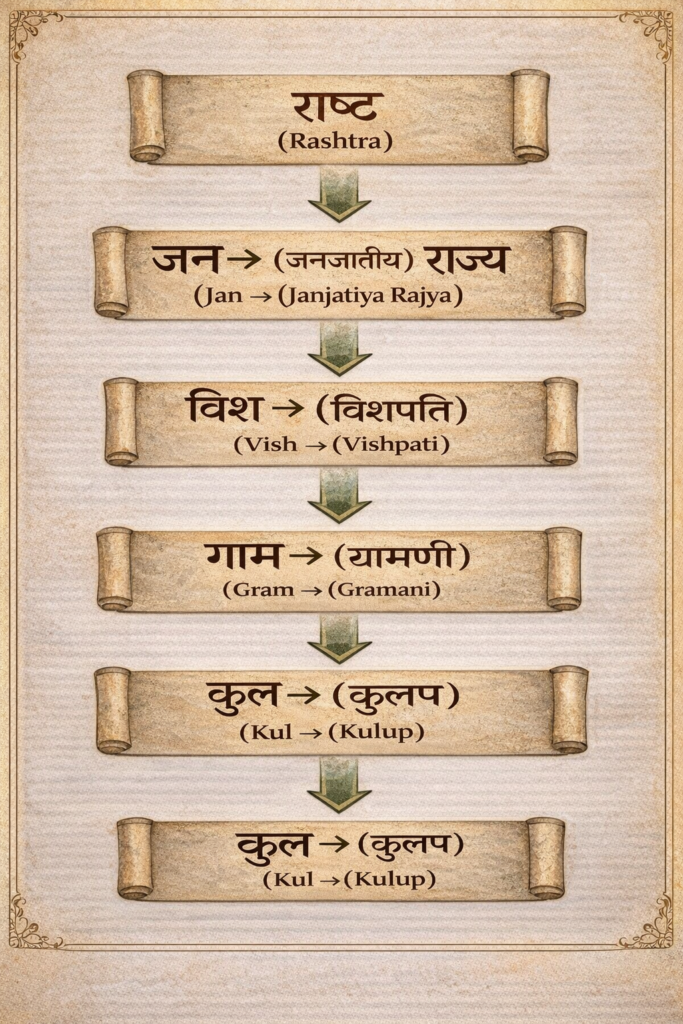 राष्ट
(Rashtra)
जन → (जनजातीय) राज्य
(Jan → (Janjatiya Rajya)
विश → (विशपति)
(Vish → (Vishpati)
गाम → (यामणी)
(Gram → (Gramani)
कुल → (कुलप)
(Kul → (Kulup)
कुल → (कुलप)
(Kul → (Kulup)